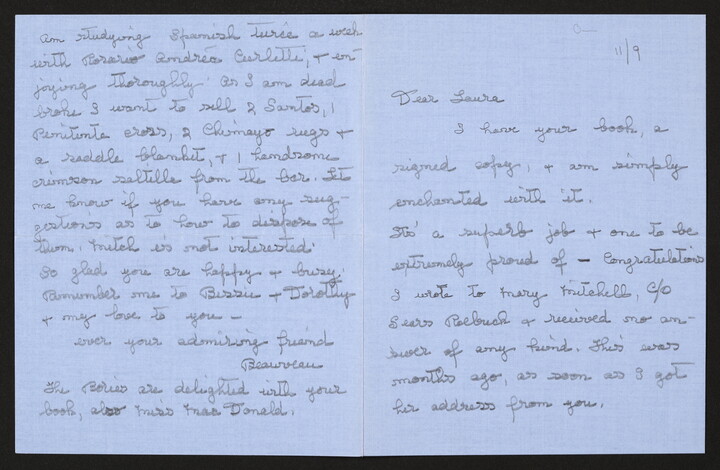 11/9
Dear Laura
I have your book, a
signed copy, & am simply
enchanted with it.
Its' a superb job & one to be
extremely proud of – Congratulations
I wrote to Mary Mitchell, c/o
Sears Roebuck & received no an-
swer of any kind. This was
months ago, as soon as I got
her address from you.
am studying Spanish twice a week
with Rosario Andréa Curletti, & en-
joying thoroughly. As I am dead
broke I want to sell 2 Santos, 1
Penitente cross, 2 Chimayo rugs &
a saddle blanket, & 1 handsome
crimson saltillo from the bar. Let
me know if you have any sug-
gestions as to how to dispose of
them. Mitch is not interested.
So glad you are happy & busy.
Remember me to Bessie & Dorothy
& my love to you –
ever your admiring friend
Beauveau
The Bories are delighted with your
book, also Miss Mac Donald.